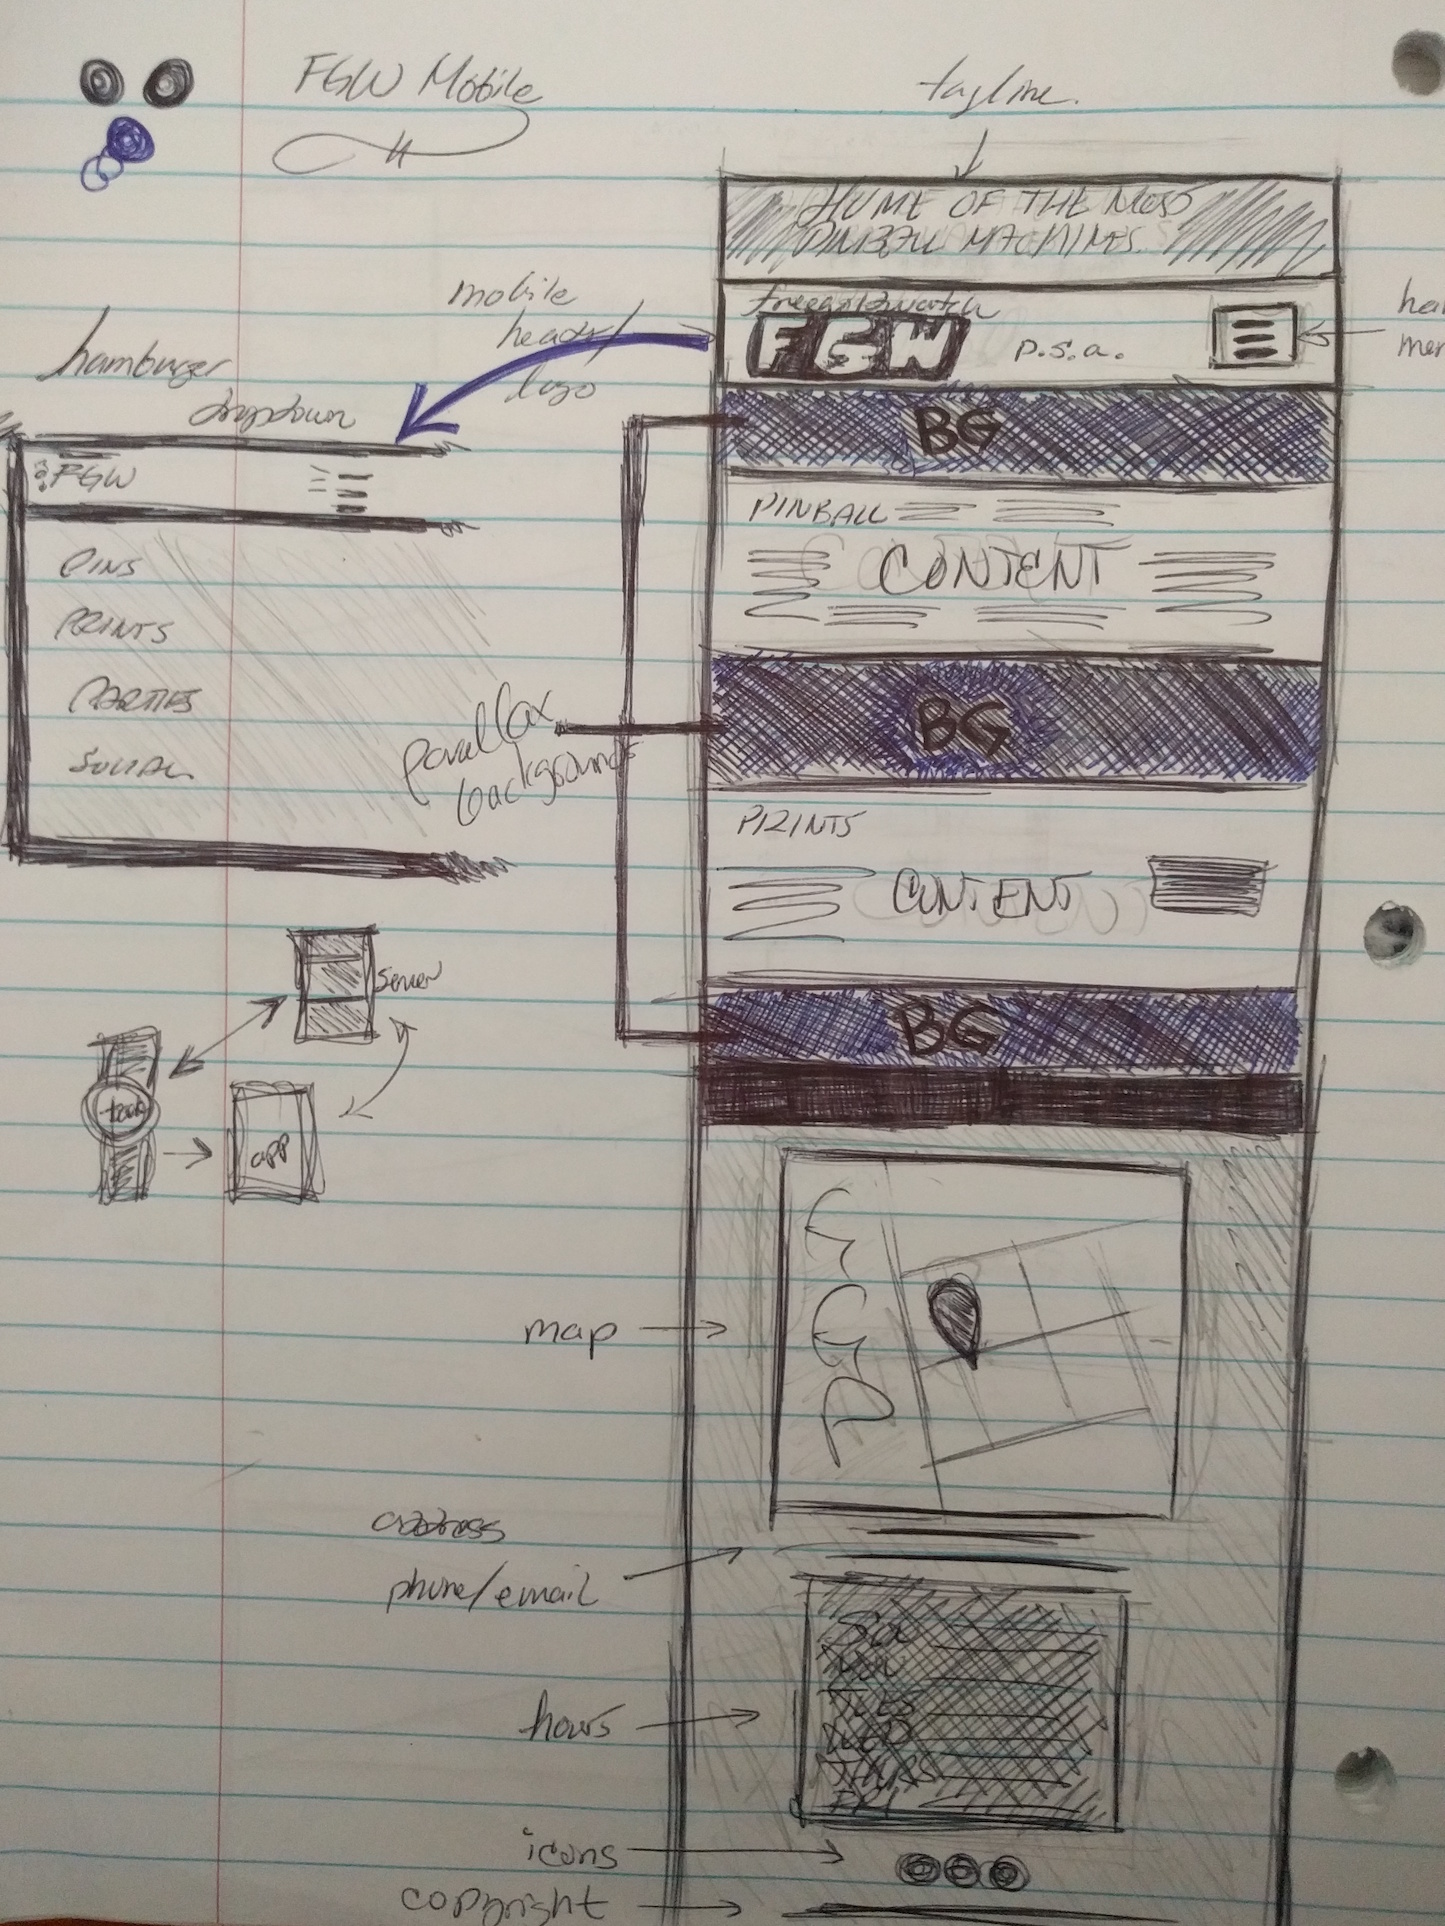 FGW Mobile
tagline.
HOME OF THE MOST
PINBALL MACHINES.
mobile
header/
logo
freegoldwatch
FGW
p.s.a.
hamburger
dropdown
FGW
PINS
PRINTS
PARTIES
SOCIAL
BG
PINBALL
CONTENT
parallax
backgrounds
BG
PRINTS
CONTENT
BG
server
app
map
address
phone/email
hours
SUN
TUES
WED
THURS
FRI
icons
copyright